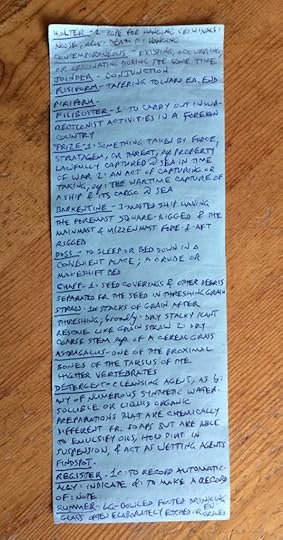 HALTER - 2: ROPE FOR HANGING CRIMINALS:
NOOSE; ALSO: DEATH BY HANGING
CONTEMPORANEOUS - EXISTING, OCCURRING
OR ORIGINATING DURING THE SAME TIME
JOINDER - CONJUNCTION
FUSIFORM - TAPERING TOWARD EA. END
PIRIFORM.
FILIBUSTER - 1: TO CARRY OUT INSUR-
RECTIONIST ACTIVITIES IN A FOREIGN
COUNTRY
PRIZE - 1: SOMETHING TAKEN BY FORCE,
STRATAGEM, OR THREAT; esp: PROPERTY
LAWFULLY CAPTURED @ SEA IN TIME
OF WAR 2: AN ACT OF CAPTURING OR
TAKING, esp: THE WARTIME CAPTURE OF
A SHIP & ITS CARGO @ SEA
BARKENTINE - 3-MASTED SHIP HAVING
THE FOREMAST SQUARE-RIGGED & THE
MAINMAST & MIZZENMAST FORE-&-AFT
RIGGED
DOSS - TO SLEEP OR BED DOWN IN A
CONVENIENT PLACE; A CRUDE OR
MAKESHIFT BED
CHAFF - 1: SEED COVERINGS & OTHER DEBRIS
SEPARATED FR. THE SEED IN THRESHING GRAIN
STRAW - STACKS OF GRAIN AFTER
THRESHING; broadly: DRY STALKY PLANT
RESIDUE LIKE GRAIN STRAW 2: DRY
COARSE STEM esp OF A CEREAL GRASS
ASTRAGALUS - ONE OF THE PROXIMAL
BONES OF THE TARSUS OF THE
HIGHER VERTEBRATES
DETERGENT - CLEANSING AGENT, AS b:
ANY OF NUMEROUS SYNTHETIC WATER-
SOLUBLE OR LIQUID ORGANIC
PREPARATIONS THAT ARE CHEMICALLY
DIFFERENT FR. SOAPS BUT ARE ABLE
TO EMULSIFY OILS, HOLD DIRT IN
SUSPENSION, & ACT AS WETTING AGENTS
FINDSPOT.
REGISTER - 1c: TO RECORD AUTOMATIC-
ALLY: INDICATE d: TO MAKE A RECORD
OF: NOTE
RUMMER - LG-BOWLED FOOTED DRINKING
GLASS OFTEN ELABORATELY ETCHED OR